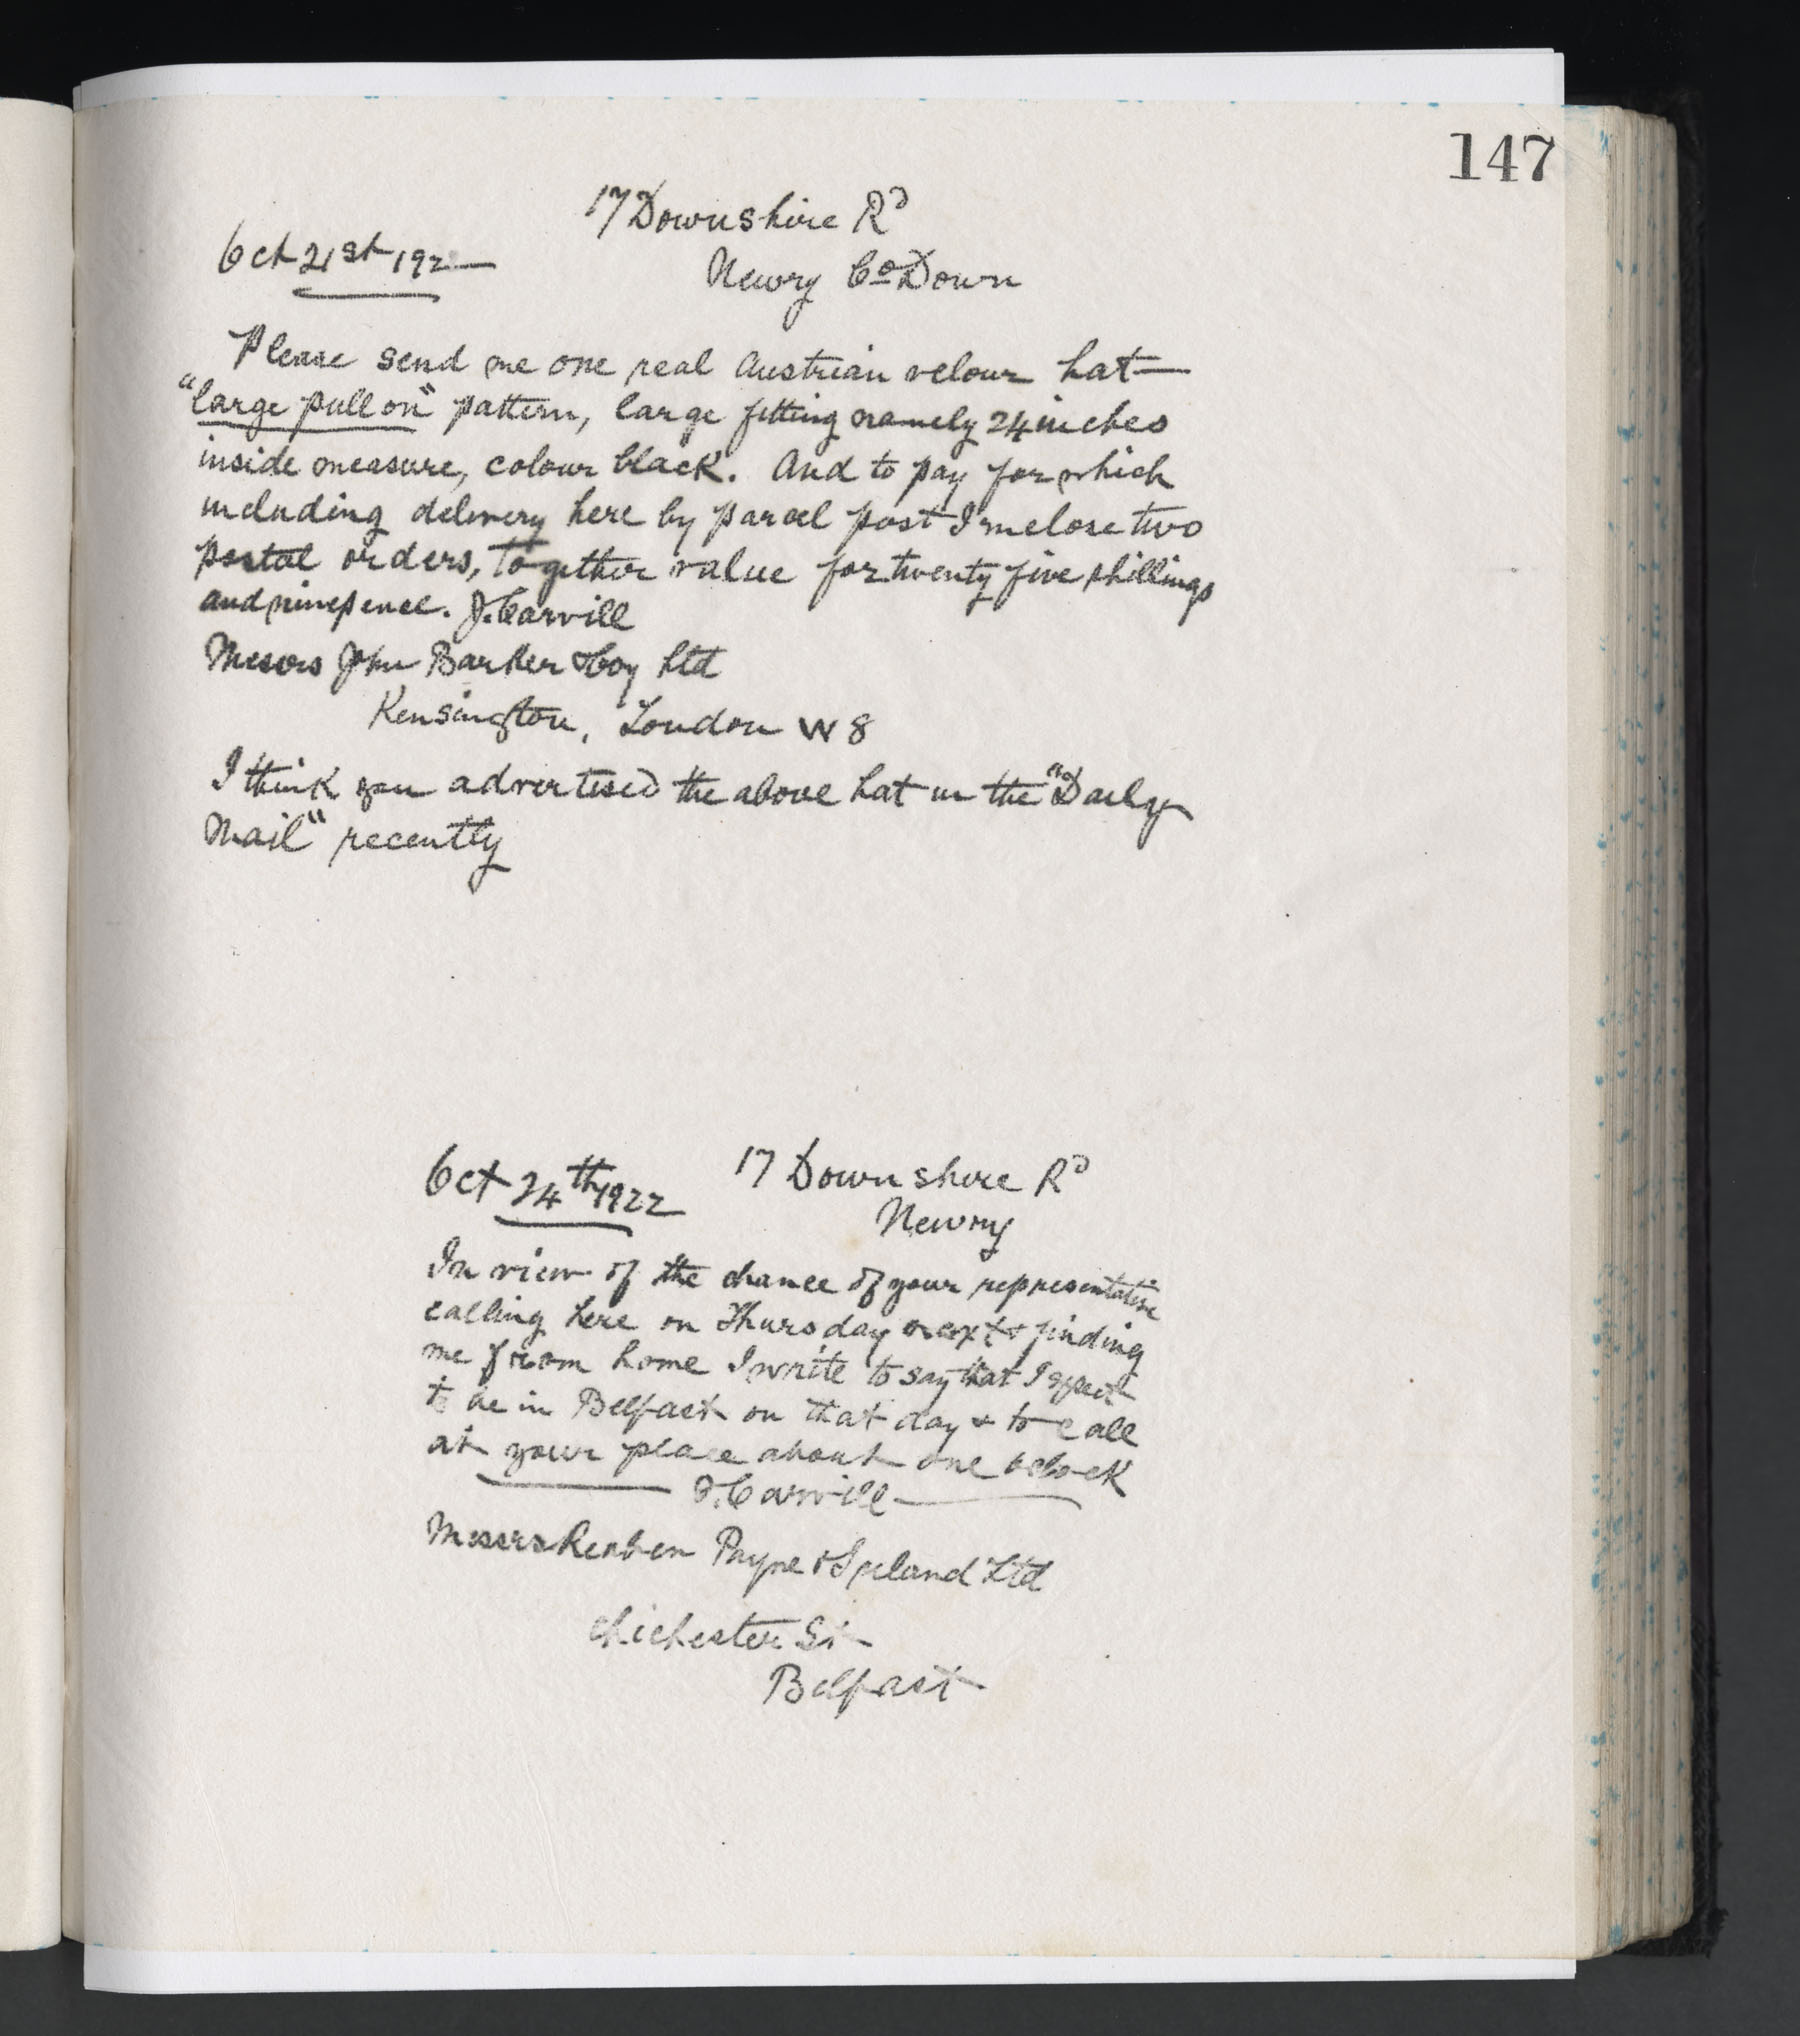 147
17 Downshire Rd
Oct 21st 192
Newry Co Down
Please send me one real Austrian velour hat—
"large pull on" pattern, large fitting namely 24 inches
inside measure, colour black. And to pay for which
including delivery here by parcel post I inclose two
postal orders, together value for twenty five shillings
and ninepence. J. Carvill
Messrs John Barker & Coy Ltd
Kensington, London W 8
I think you advertised the above hat in the "Daily
Mail" recently
Oct 24th 1922
17 Downshire Rd
Newry
In view of the chance of your representative
calling here on Thursday next & finding
me from home I write to say that I expect
to be in Belfast on that day & to call
at your place about one oclock
J. Carvill
Messrs Reuben Payne & Ireland Ltd
Chichester St
Belfast